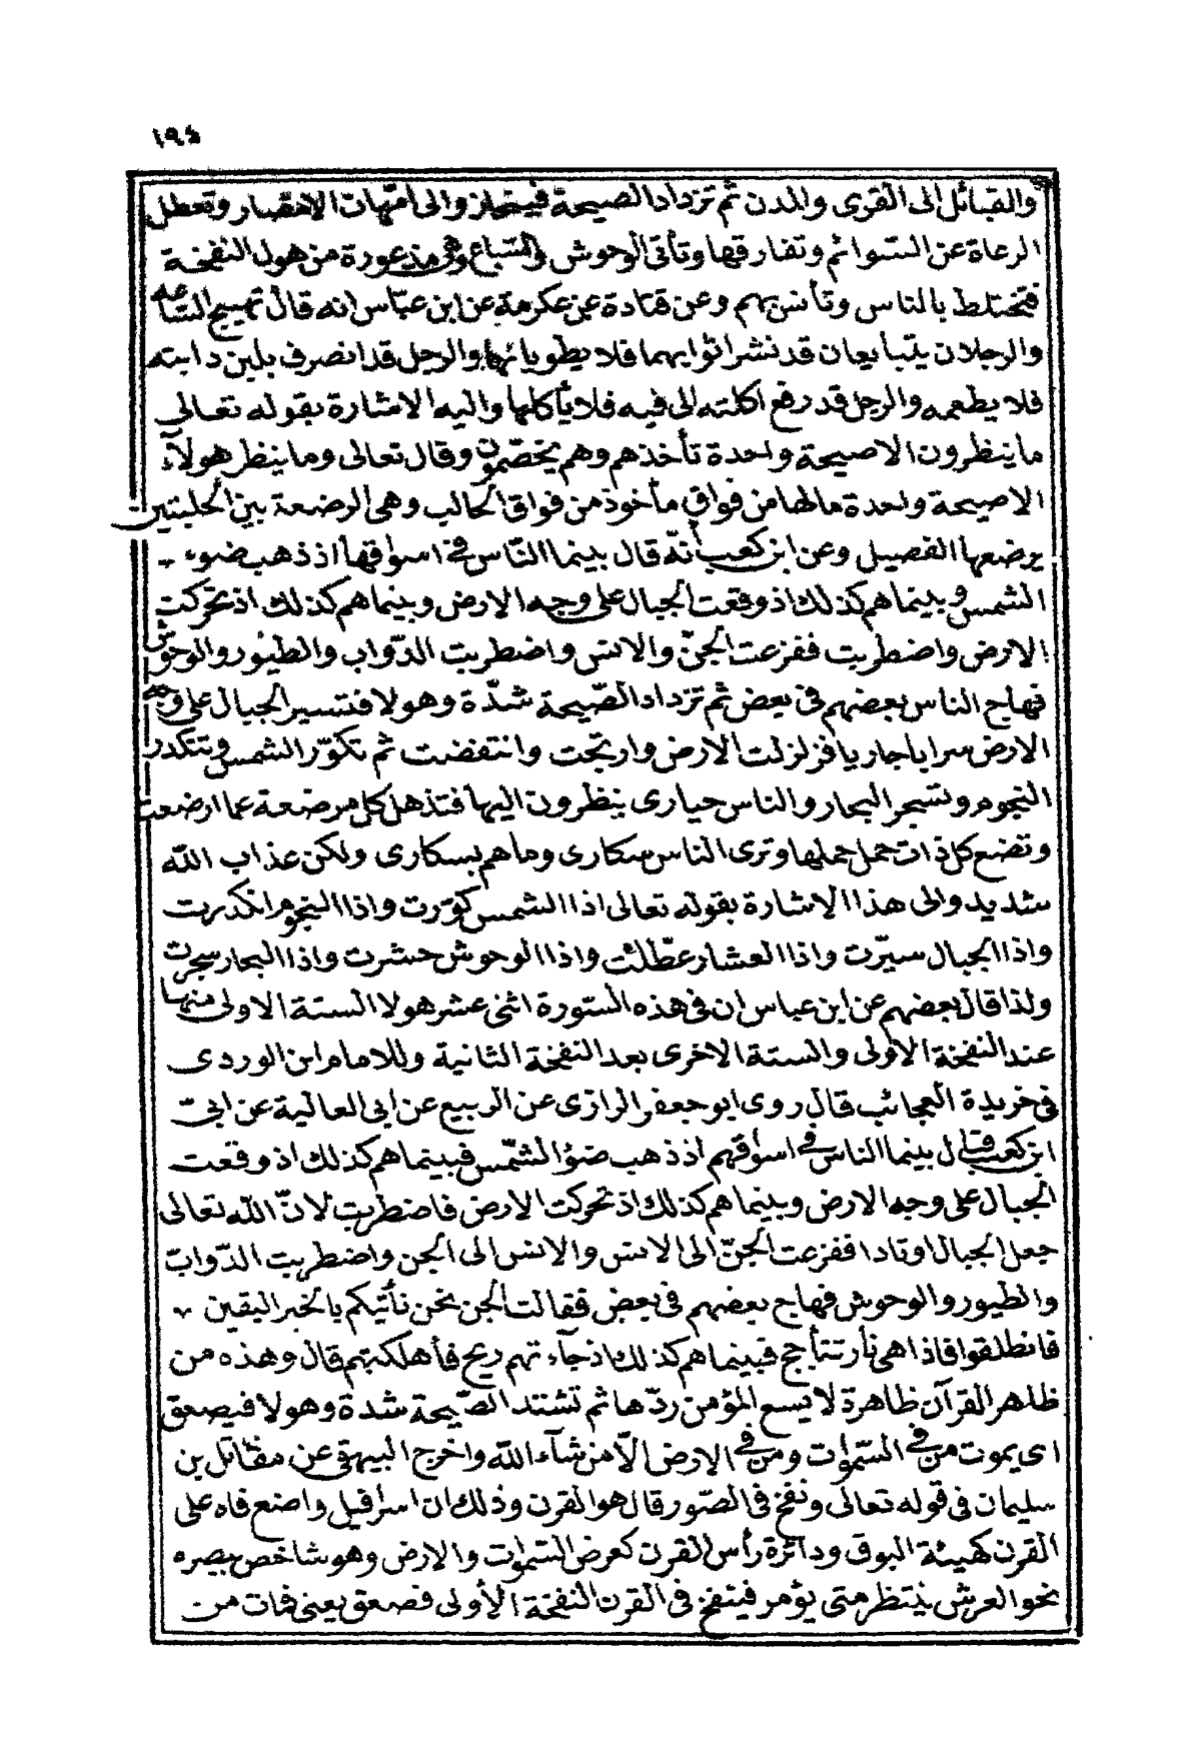 ١٩٤
والقبائل الى القرى والمدن ثم تزداد الصيحة فينحازوا الى امّهات الامصار وتعطل
الرعاة عن السّوائم وتفارقها وتأتى الوحوش والسّباع وهى مذعورة من هول النفخة
فتختلط بالناس وتأنس بهم وعن قتادة عن عكرمة عن ابن عبّاس انه قال تهيج السّاعة
والرجلان يتبايعان قد نشرا ثوابهما فلا يطويانها والرجل قد انصرف بلبن دابته
فلا يطعمه والرجل قد رفع اكلته الى فيه فلا يأكلها واليه الاشارة بقوله تعالى
ما ينظرون الا صيحة واحدة تأخذهم وهم يخصّمون وقال تعالى وما ينظر هولآء
الا صيحة واحدة مالها من فواق مأخوذ من فواق الحالب وهى الرضعة بين الحلبتين
يرضعها الفصيل وعن ابن كعب أنّه قال بينما النّاس فى اسواقها اذ ذهب ضوء
الشمس وبينما هم كذلك اذ وقعت الجبال على وجه الارض وبينما هم كذلك اذ تحركت
الارض واضطربت ففزعت الجنّ والانس واضطربت الدّواب والطيور والوحوش
فهاج الناس بعضهم فى بعض ثم تزداد الصّيحة شدّة وهولا فتسير الجبال على وجه
الارض سرابا جاريا فزلزلت الارض وارتجت وانتفضت ثم تكوّر الشمس وتنكدر
النجوم وتسجر البحار والناس حيارى ينظرون اليها فتذهل كل مرضعة عما ارضعت
وتضع كل ذات حمل حملها وترى الناس سكارى وما هم بسكارى ولكن عذاب الله
شديد والى هذا الاشارة بقوله تعالى اذا الشمس كوّرت واذا النجوم انكدرت
واذا الجبال سيّرت واذا العشار عطّلت واذا الوحوش حشرت واذا البحار سجرت
ولذا قال بعضهم عن ابن عباس ان فى هذه السّورة اثنى عشر هولا الستة الاولى منها
عند النفخة الاولى والستة الاخرى بعد النفخة الثانية وللامام ابن الوردى
فى خريدة العجائب قال روى ابو جعفر الرازى عن الربيع عن ابى العالية عن ابىّ
ابن كعب قال بينما الناس فى اسواقهم اذ ذهب ضؤ الشّمس فبينما هم كذلك اذ وقعت
الجبال على وجه الارض وبينما هم كذلك اذ تحركت الارض فاضطربت لانّ الله تعالى
جعل الجبال اوتادا ففزعت الجنّ الى الانس والانس الى الجن واضطربت الدّوابّ
والطيور والوحوش فهاج بعضهم فى بعض فقالت الجن نحن نأتيكم بالخبر اليقين
فانطلقوا فاذا هى نار تتأجج فبينما هم كذلك اذ جآءتهم ريح فأهلكتهم قال وهذه من
ظاهر القرآن ظاهرة لا يسع المؤمن ردّها ثم تشتد الصّيحة شدة وهولا فيصعق
اى يموت من فى السّموات ومن فى الارض الاّ من شآء الله واخرج البيهقى عن مقاتل بن
سليمان فى قوله تعالى ونفخ فى الصّور قال هو القرن وذلك ان اسرافيل واضع فاه على
القرن كهيئة البوق ودائرة رأس القرن كعرض السّموات والارض وهو شاخص ببصره
نحو العرش ينتظر متى يؤمر فينفخ فى القرن النفخة الأولى فصعق يعنى فمات من